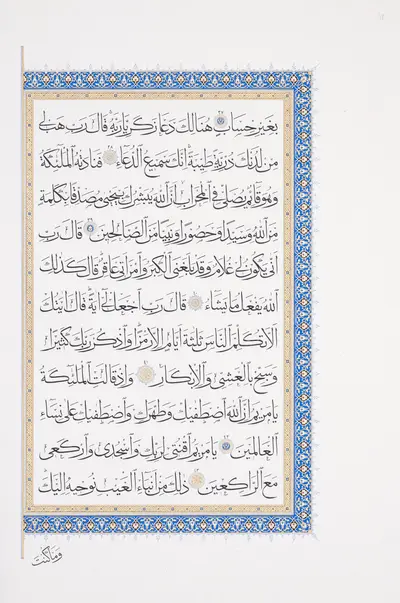 بِغَيْرِ حِسَابٍ هُنَالِكَ دَعَا زَكَرِيَّا رَبَّهُ قَالَ رَبِّ هَبْ لِي
مِنْ لَدُنْكَ ذُرِّيَّةً طَيِّبَةً إِنَّكَ سَمِيعُ الدُّعَاءِ فَنَادَتْهُ الْمَلٰئِكَةُ
وَهُوَ قَائِمٌ يُصَلِّي فِي الْمِحْرَابِ أَنَّ اللهَ يُبَشِّرُكَ بِيَحْيٰى مُصَدِّقًا بِكَلِمَةٍ
مِنَ اللهِ وَسَيِّدًا وَحَصُورًا وَنَبِيًّا مِنَ الصَّالِحِينَ قَالَ رَبِّ
أَنّٰى يَكُونُ لِي غُلَامٌ وَقَدْ بَلَغَنِيَ الْكِبَرُ وَامْرَأَتِي عَاقِرٌ قَالَ كَذٰلِكَ
اللهُ يَفْعَلُ مَا يَشَاءُ قَالَ رَبِّ اجْعَلْ لِي آيَةً قَالَ آيَتُكَ
أَلَّا تُكَلِّمَ النَّاسَ ثَلٰثَةَ أَيَّامٍ إِلَّا رَمْزًا وَاذْكُرْ رَبَّكَ كَثِيرًا
وَسَبِّحْ بِالْعَشِيِّ وَالْإِبْكَارِ وَإِذْ قَالَتِ الْمَلٰئِكَةُ
يَا مَرْيَمُ إِنَّ اللهَ اصْطَفٰيكِ وَطَهَّرَكِ وَاصْطَفٰيكِ عَلٰى نِسَاءِ
الْعَالَمِينَ يَا مَرْيَمُ اقْنُتِي لِرَبِّكِ وَاسْجُدِي وَارْكَعِي
مَعَ الرَّاكِعِينَ ذٰلِكَ مِنْ أَنْبَاءِ الْغَيْبِ نُوحِيهِ إِلَيْكَ
وَمَا كُنْتَ